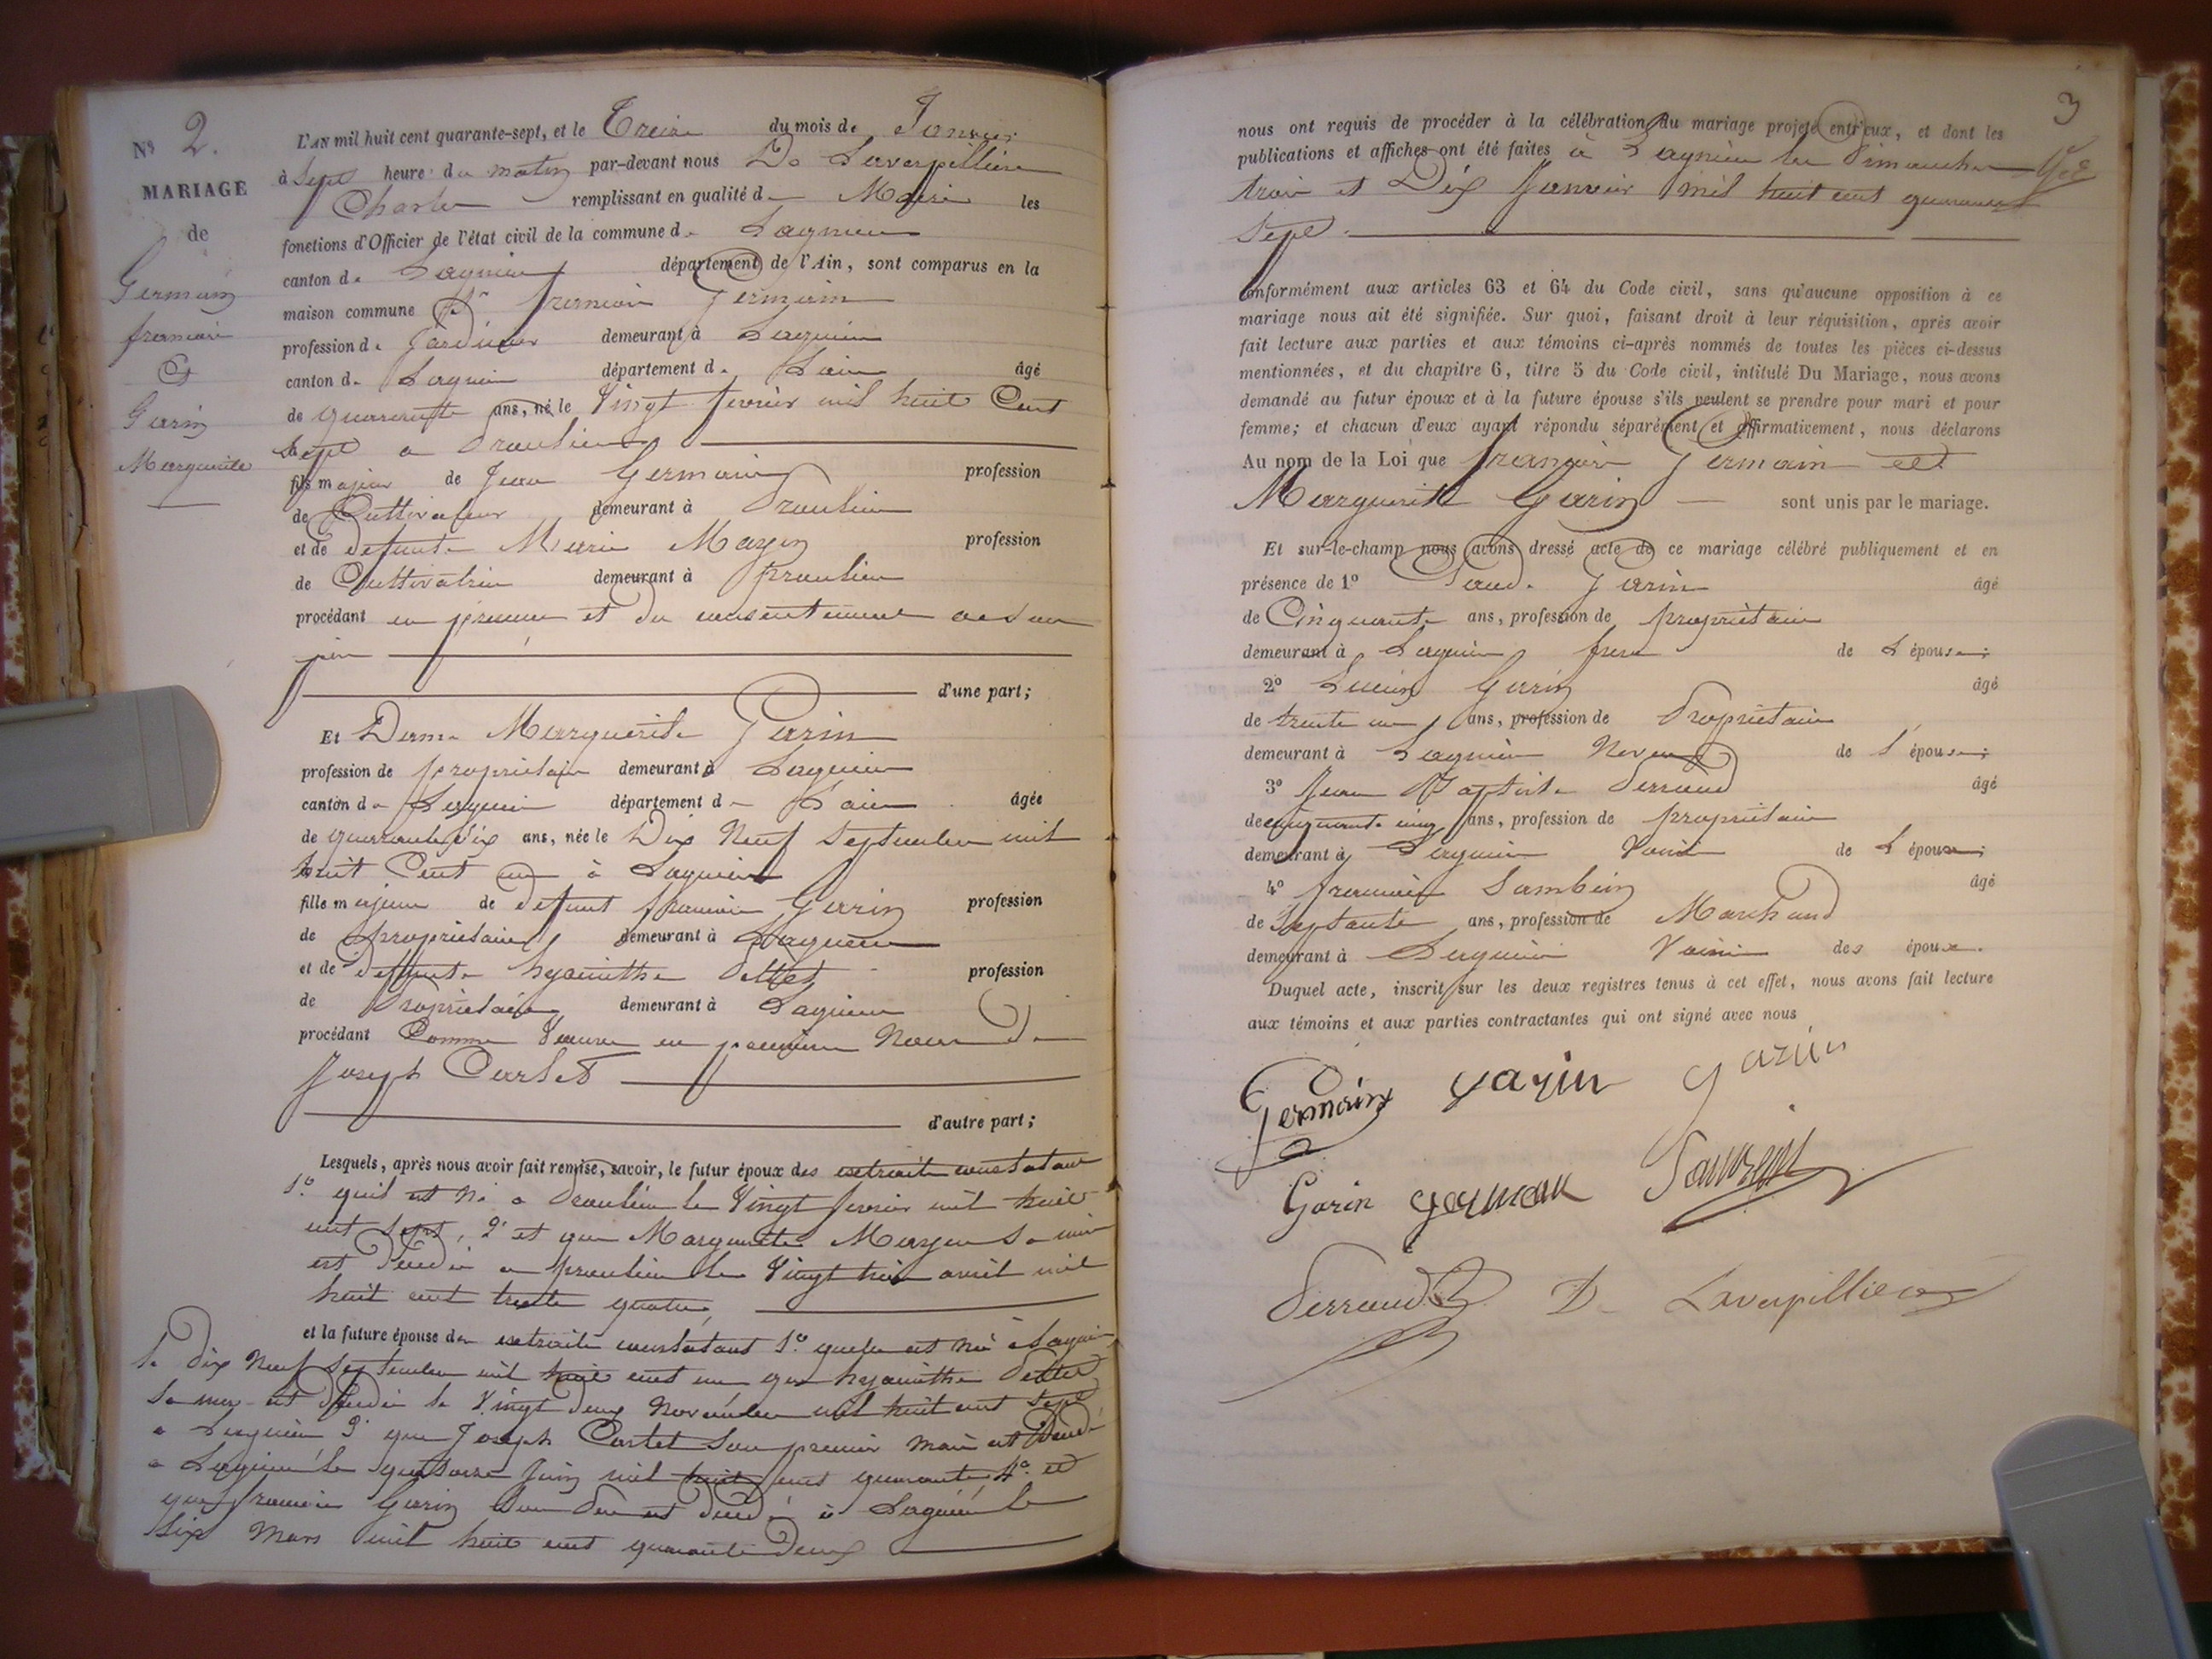 Nº 2.
MARIAGE
de
Germain
françois
Et
Garin
Marguerite
L'AN mil huit cent quarante-sept, et le Treize du mois de Janvier
à Sept heure du matin par-devant nous De Laverpillière
Charles remplissant en qualité de Maire les
fonctions d'Officier de l'état civil de la commune de Lagnieu
canton de Lagnieu département de l'Ain, sont comparus en la
maison commune Sr françois Germain
profession de Jardinier demeurant à Lagnieu
canton de Lagnieu département de L'ain âgé
de quarante ans, né le Vingt fevrier mil huit Cent
Sept a Proulieu
fils majeur de Jean Germain profession
de Cultivateur demeurant à Proulieu
et de defunte Marie Mayen profession
de Cultivatrice demeurant à Proulieu
procédant en présence et du consentement de son
père
d'une part;
Et Dame Marguerite Garin
profession de propriétaire demeurant à Lagnieu
canton de Lagnieu département de L'ain âgée
de quarante six ans, née le Dix Neuf Septembre mil
huit Cent un à Lagnieu
fille majeure de defunt françois Garin profession
de propriétaire demeurant à Lagnieu
et de deffunte hyacinthe profession
de Propriétaire demeurant à Lagnieu
procédant Comme Veuve en première Noces de
Joseph Carlet
d'autre part;
Lesquels, après nous avoir fait remise, savoir, le futur époux des extraits constatant
1º quil est né a Proulieu le Vingt fevrier mil huit
cent sept, 2º et que Marguerite Mayen Sa mère
est Décédée a proulieu le Vingt trois avril mil
huit cent trente quatre,
et la future épouse des extraits constatant 1º quelle est née à Lagnieu
le dix Neuf Septembre mil huit cent un que hyacinthe
Sa mère est Décédée le Vingt deux Novembre mil huit cent Sept
a Lagnieu 3º que Joseph Carlet Son premier mari est Décédé
a Lagnieu le quatorze Juin mil huit cent quarante, 4º et
que francois Garin Son Père est Décédé à Lagnieu le
Six Mars mil huit cent quarante Deux
3
nous ont requis de procéder à la célébration du mariage projeté entr'eux, et dont les
publications et affiches ont été faites à Lagnieu les Dimanches
trois et Dix Janvier mil huit cent quarante
Sept.
conformément aux articles 63 et 64 du Code civil, sans qu'aucune opposition à ce
mariage nous ait été signifiée. Sur quoi, faisant droit à leur réquisition, après avoir
fait lecture aux parties et aux témoins ci-après nommés de toutes les pièces ci-dessus
mentionnées, et du chapitre 6, titre 5 du Code civil, intitulé Du Mariage, nous avons
demandé au futur époux et à la future épouse s'ils veulent se prendre pour mari et pour
femme; et chacun d'eux ayant répondu séparément et affirmativement, nous déclarons
Au nom de la Loi que françois Germain et
Marguerite Garin sont unis par le mariage.
Et sur-le-champ nous avons dressé acte de ce mariage célébré publiquement et en
présence de 1º Garin âgé
de Cinquante ans, profession de propriétaire
demeurant à Lagnieu frere de L'épouse;
2º Lucien Garin âgé
de trente un ans, profession de Propriétaire
demeurant à Lagnieu Neveu de L'épouse;
3º Jean Baptiste Perraud âgé
de cinquante cinq ans, profession de propriétaire
demeurant à Lagnieu Voisin de L'épouse;
4º françois âgé
de Septante ans, profession de Marchand
demeurant à Lagnieu Voisin des époux.
Duquel acte, inscrit sur les deux registres tenus à cet effet, nous avons fait lecture
aux témoins et aux parties contractantes qui ont signé avec nous
Germain garin garin
Garin
Perraud D Laverpilliere